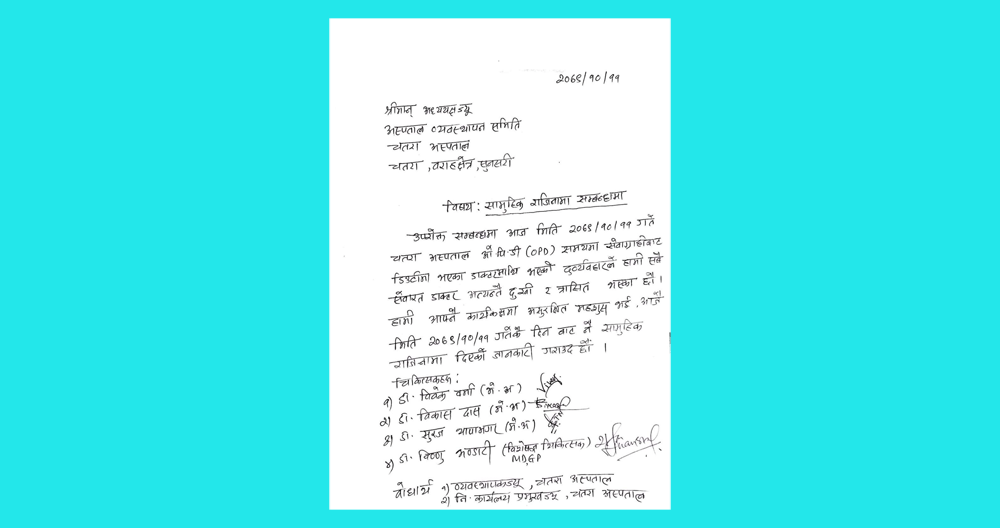 २०८१/१०/११
श्रीमान् अध्यक्षज्यू
अस्पताल व्यवस्थापन समिति
चतरा अस्पताल
चतरा, वराहक्षेत्र, सुनसरी
विषय: सामुहिक राजिनामा सम्बन्धमा
उपरोक्त सम्बन्धमा आज मिति २०८१/१०/११ गते
चतरा अस्पताल ओ.पि.डी (OPD) समयमा सेवाग्राहीबाट
डिउटीमा भएका डाक्टरमाथि भएको दुर्व्यवहारले हामी सबै
सेवारत डाक्टर अत्यन्तै दुःखी र त्रासित भएका छौं।
हामी आफ्नै कार्यकक्षमा असुरक्षित महशुस भई, आजै
मिति २०८१/१०/११ गतेकै दिन बाट नै सामुहिक
राजिनामा दिएको जानकारी गराउदछौं।
चिकित्सकहरु:
१) डा. विवेक वर्मा (मे.अ)
२) डा. विकास दास (मे.अ)
३) डा. सुरज थापामगर (मे.अ)
४) डा. विष्णु भण्डारी (विशेषज्ञ चिकित्सक)
MDGP
बोधार्थ १) व्यवस्थापकज्यू, चतरा अस्पताल
२) नि. कार्यालय प्रमुखज्यू, चतरा अस्पताल